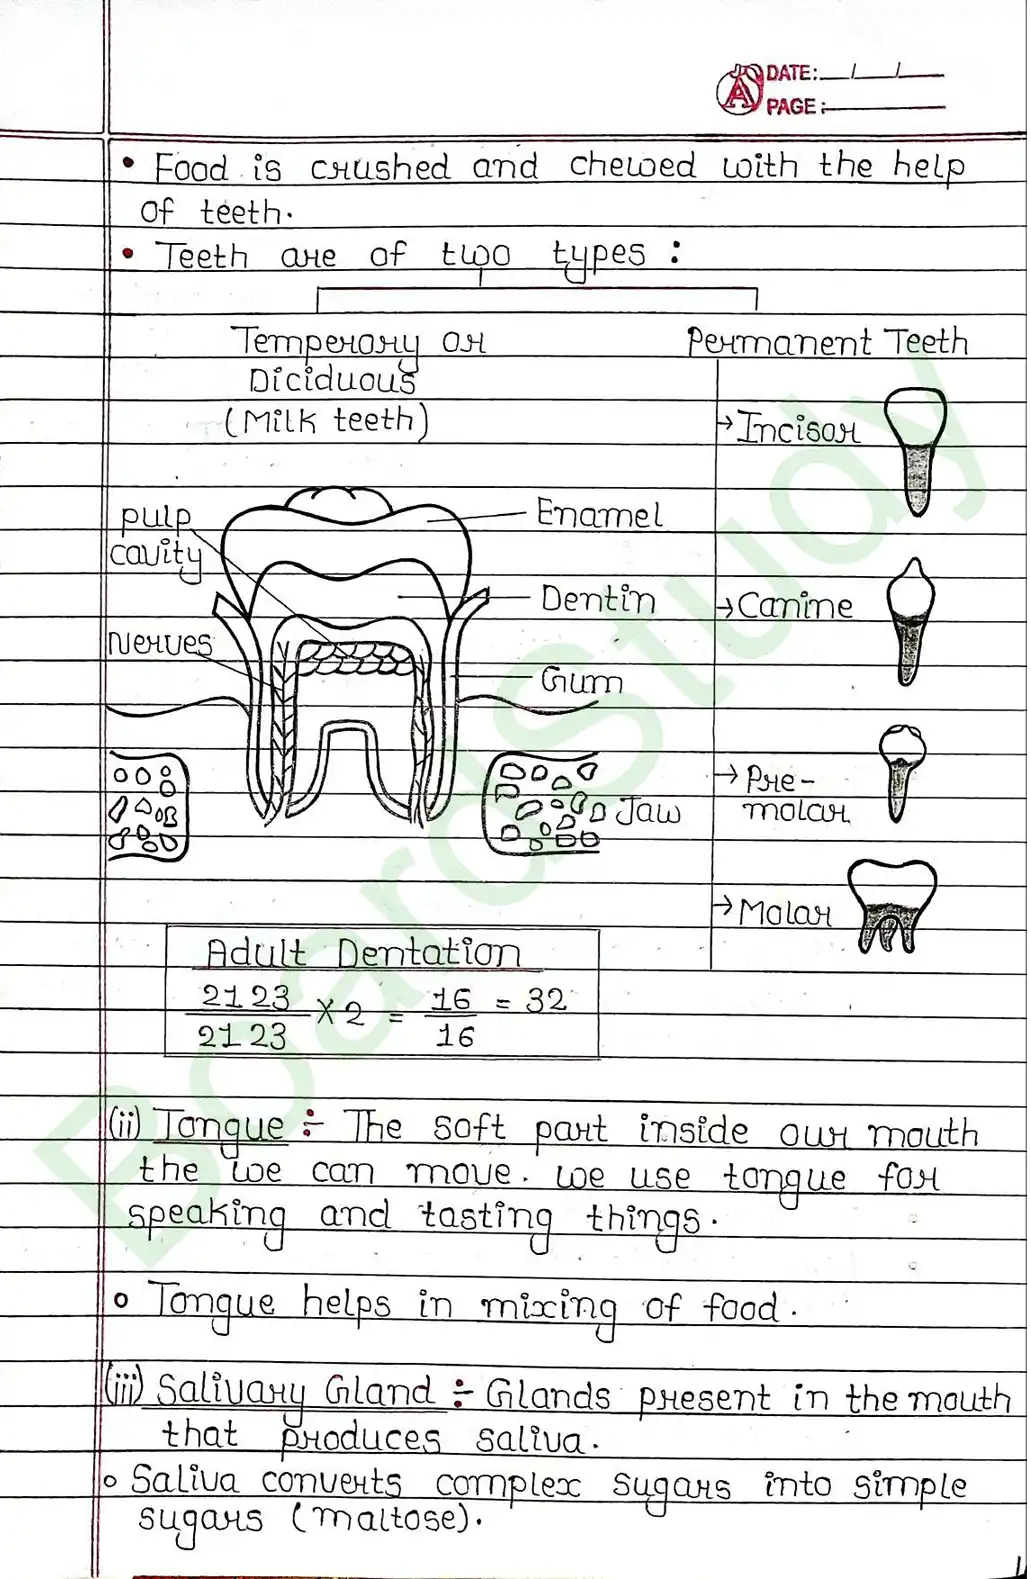 DATE: / /
PAGE:
• Food is crushed and chewed with the help
of teeth.
• Teeth are of two types :
Temperory or
Diciduous
(Milk teeth)
Permanent Teeth
→ Incisor
→ Canine
→ Pre-
molar
→ Molar
pulp
cavity
Nerves
Enamel
Dentin
Gum
Jaw
Adult Dentation
2123/2123 × 2 = 16/16 = 32
(ii) Tongue ÷ The soft part inside our mouth
the we can move. we use tongue for
speaking and tasting things.
o Tongue helps in mixing of food.
(iii) Salivary Gland ÷ Glands present in the mouth
that produces saliva.
o Saliva converts complex sugars into simple
sugars (maltose).
BoardStudy